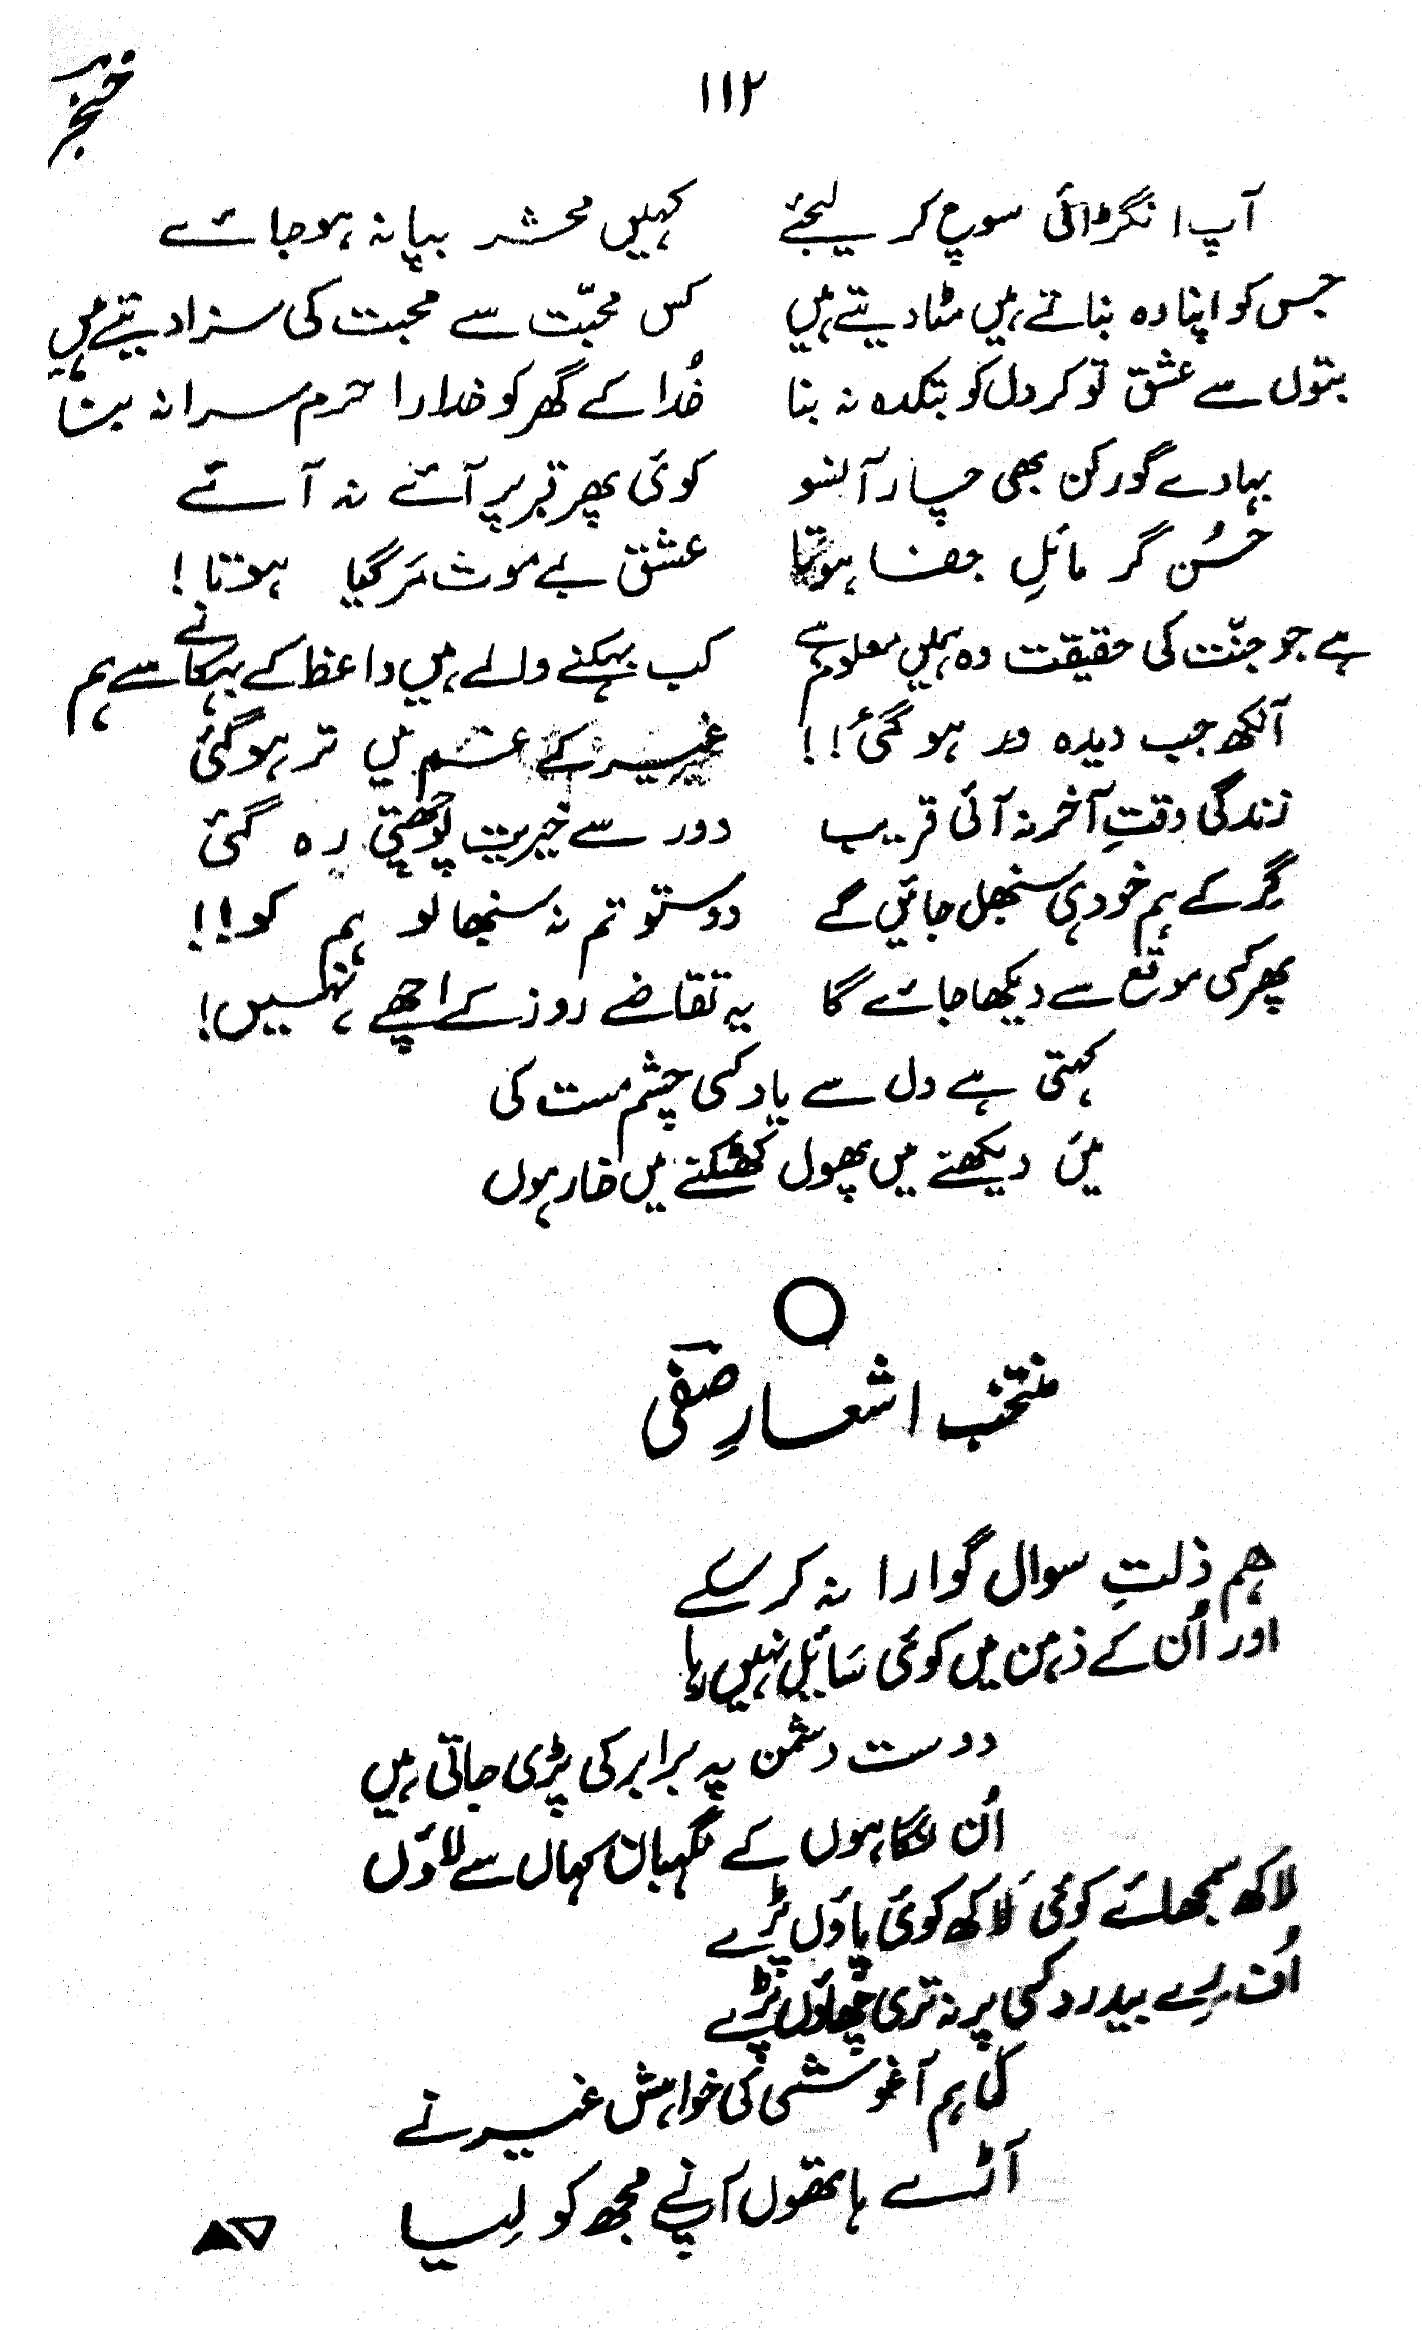 خنجر
۱۱۲
آپ انگڑائی سوچ کر لیجئے کہیں محشر بپا نہ ہو جائے
جس کو اپنا وہ بناتے ہیں مٹا دیتے ہیں کس محبّت سے محبت کی سزا دیتے ہیں
بتوں سے عشق تو کر دل کو بتکدہ نہ بنا خُدا کے گھر کو خدارا حرم سرا نہ بنا
بہادے گورکن بھی چار آنسو کوئی پھر قبر پر آئے نہ آئے
حسُن گر مائلِ جفا ہوتا عشق بے موت مَر گیا ہوتا !
ہے جو جنّت کی حقیقت وہ ہمیں معلوم ہے کب بہکنے والے ہیں واعظ کے بہکانے سے ہم
آنکھ جب دیدہ ور ہو گئی !! غیر کے غم میں تر ہو گئی
زندگی وقتِ آخر نہ آئی قریب دور سے خیریت پوچھتی رہ گئی
گِر کے ہم خود ہی سنبھل جائیں گے دوستو تم نہ سنبھالو ہم کو !!
پھر کسی موقع سے دیکھا جائے گا یہ تقاضے روز کے اچھے نہیں !
کہتی ہے دل سے یاد کسی چشم مست کی
میں دیکھنے میں پھول کھٹکنے میں خار ہوں
منتخب اشعارِ صفی
ہم ذلتِ سوال گوارا نہ کر سکے
اور اُن کے ذہن میں کوئی سَائل نہیں رہا
دوست دشمن پہ برابر کی پڑی جاتی ہیں
اُن نگاہوں کے نگہبان کہاں سے لاؤں
لاکھ سمجھائے کوئی لاکھ کوئی پاؤں پڑے
اُف رے بیدرد کسی پر نہ تری چھاؤں پڑے
کل ہم آغوشی کی خواہش غیر نے
آڑے ہاتھوں آپنے مجھ کو لِیا